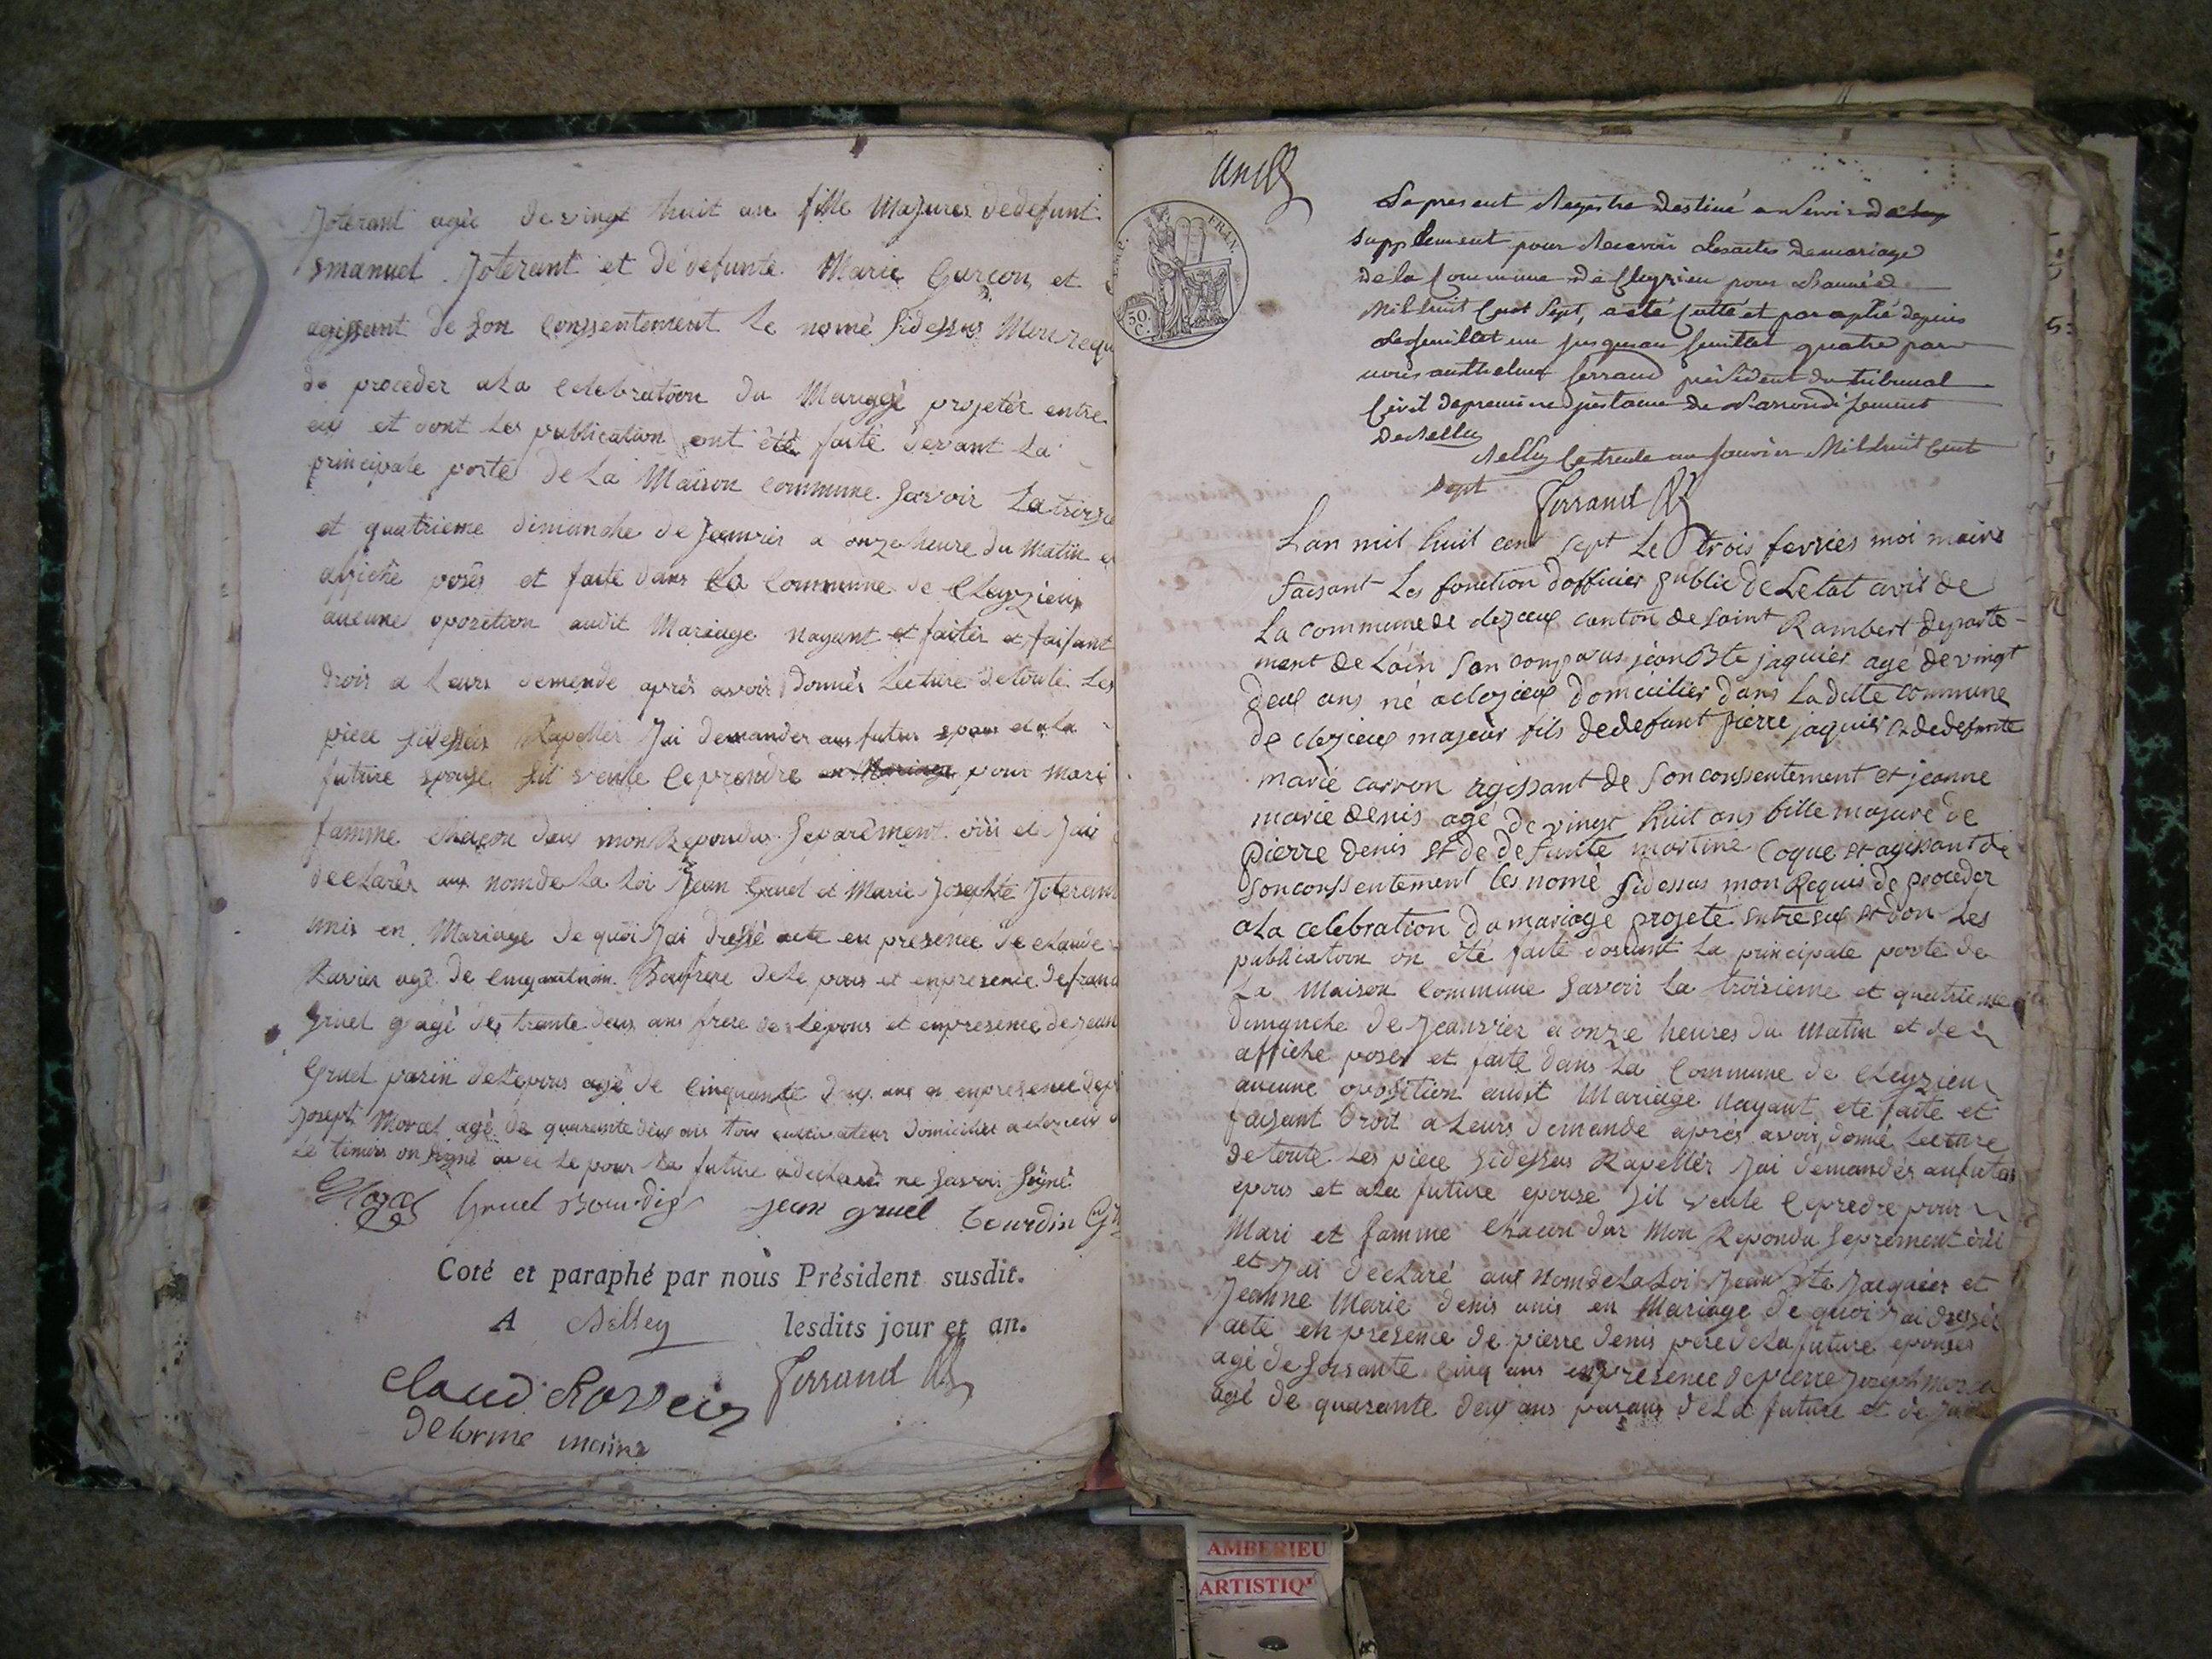 Joterant agée de vingt huit ans fille Majeures dedefunt
Emanuel Joterant et dédefunte Marie Garcon et
agissant de Son Conssentement le nomé Sidessus Mon requ
de proceder ala Celebration du Mariage projetér entre
eux et dont Les publication ont été faite devant La
principale porte de La Maison Commune Savoir La troisie
et quatrieme dimanche de Jeanvier a onze heure du Matin et
affiche posés et faite dans La Commune de Cleyzieux
aucune oposition audit Mariage nayant et faiter et faisant
drois a Leurs demende aprés avoir donnér Lecture detoute Les
piece Sidessus Rapellér Jai demander au futur epous et ala
future epouse Sil veule leprendre en Mariage pour mari
famme Chacun deux mon Repondu Separément oüi et Jai
declarér aux nom de La Loi Jean Gruel et Marie Josephte Joterant
unis en Mariage de quoi Jai dressé acte en presence de claude
Ravier agé de cinquante Baufrere dele pous et enpresence defranc
Gruel agé de trante deux ans frere de Lépous et en presence de Jean
Gruel parin deLepous agé de Cinquante deux ans et enpresence depi
Joseph Morel agé de quarante deux ans tous cultivateur Domicilier a cleyzieu
Lé temoins on signé avec Le pous La future adeclaré ne Savoir Signé
Morel Gruel Bourdin jean gruel bourdin
Coté et paraphé par nous Président susdit.
A Belley lesdits jour et an.
claud Ravier Ferrand
Delorme maire
un
Le present Registre Destiné a Servir de
Supplement pour Recevoir Les actes demariage
de la Commune de Cleyzieu pour L'année
Mil huit Cent Sept, a été Cotté et paraphé depuis
Le feuillet un jusqu'au feuillet quatre par
nous anthelme ferrand président du tribunal
Civil de premiere instance de L'arrondissement
De Belley
Belley Le trente un Janvier Mil huit Cent
Sept Ferrand
EMP. FRAN.
50. C.
Lan mil huit cent sept Le trois fevrier moi maire
faisant Les fonction dofficier public de Letat civil de
La commune de clezieux canton de saint Rambert departe-
ment de Láin Son comparus jean Bte jaquier agé de vingt
deux ans né aclezieux domicilier dans Laditte commune
de clezieux majeur fils dedefunt pierre jaquier et dedefunte
marie carron agissant de Sonconssentement et jeanne
marie denis agé de vingt huit ans fille majeure de
pierre denis et de defunte martine Coque et agissant de
Sonconssentement les nomé Sidessus mon Requis de proceder
aLa celebration du mariage projeté entre eux et don Les
publication on été faite devant La principale porte de
La Maison Commune Savoir La troisieme et quatrieme
dimanche de Jeanvier a onze heures du Matin et de
affiche poser et faite dans La Commune de Cleyzieu
aucune oposition audit Mariage nayant eté faite et
faisant Droit a Leurs demande aprés avoir donné Lecture
detoute Les piece Sidessus Rapellér Jai demandér aufutur
epous et aLa future epouse Sil veule lepredre pour
Mari et famme Chacun deux Mon Repondu Seprement oüi
et Jai declaré aux nomdeLaLoi Jean Bte Jacquier et
Jeanne Marie denis unis en Mariage de quoi Jai dressér
acte en presence de pierre denis pere deLa future epouse
agé de Soisante Cinq ans enpresence depierre Joseph Morel
agé de quarante deux ans parans deLa future et de
AMBERIEU
ARTISTIQ